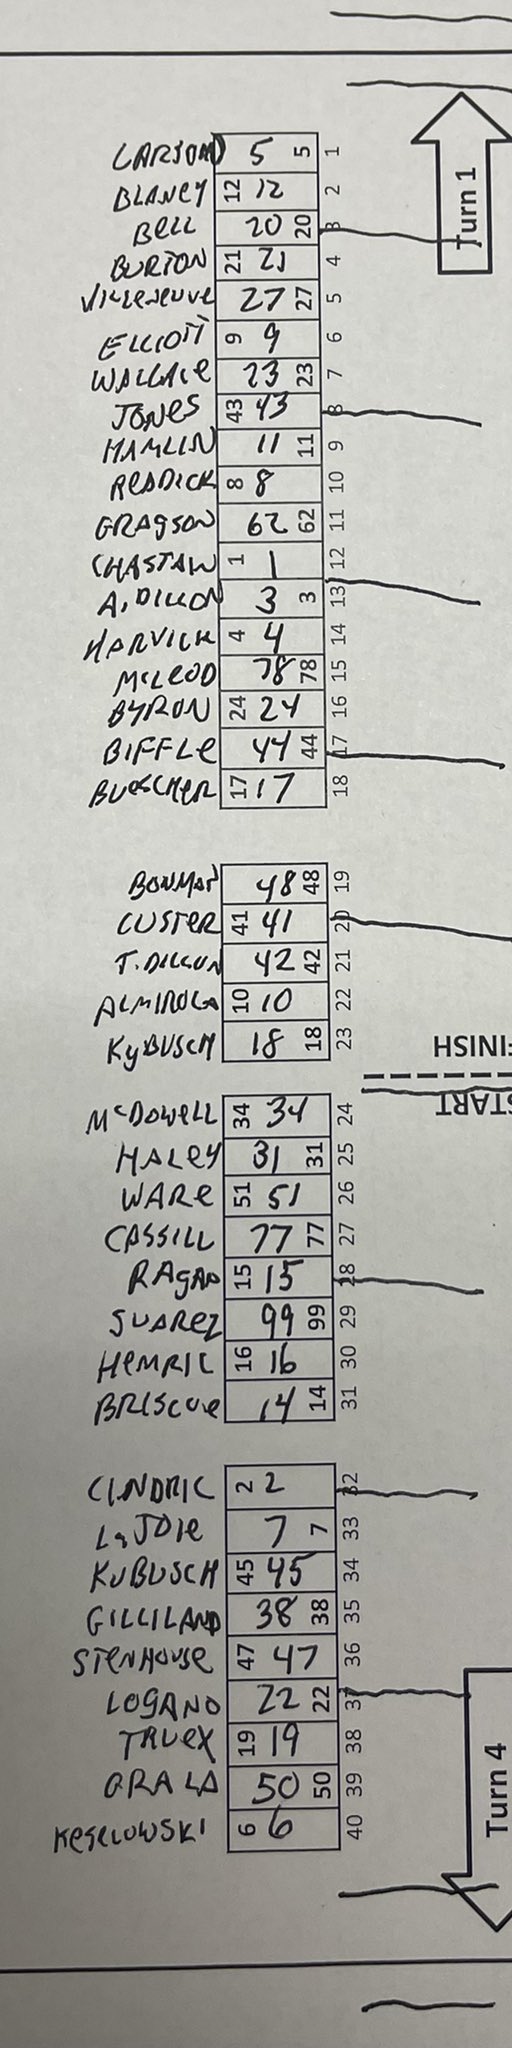 Turn 1
LARSON 5 5 1
BLANEY 12 12 2
BELL 20 20 3
BURTON 21 21 4
VILLENEUVE 27 27 5
ELLIOTT 9 9 6
WALLACE 23 23 7
JONES 43 43 8
HAMLIN 11 11 9
REDDICK 8 8 10
GRAGSON 62 62 11
CHASTAIN 1 1 12
A. DILLON 3 3 13
HARVICK 4 4 14
McLEOD 78 78 15
BYRON 24 24 16
BIFFLE 44 44 17
BUESCHER 17 17 18
BOWMAN 48 48 19
CUSTER 41 41 20
T. DILLON 42 42 21
ALMIROLA 10 10 22
KyBUSCH 18 18 23
FINISH
START
McDOWELL 34 34 24
HALEY 31 31 25
WARE 51 51 26
CASSILL 77 77 27
RAGAN 15 15 28
SUAREZ 99 99 29
HEMRIC 16 16 30
BRISCOE 14 14 31
CINDRIC 2 2 32
LaJOIE 7 7 33
KUBUSCH 45 45 34
GILLILAND 38 38 35
STENHOUSE 47 47 36
LOGANO 22 22 37
TRUEX 19 19 38
GRALA 50 50 39
KESELOWSKI 6 6 40
Turn 4